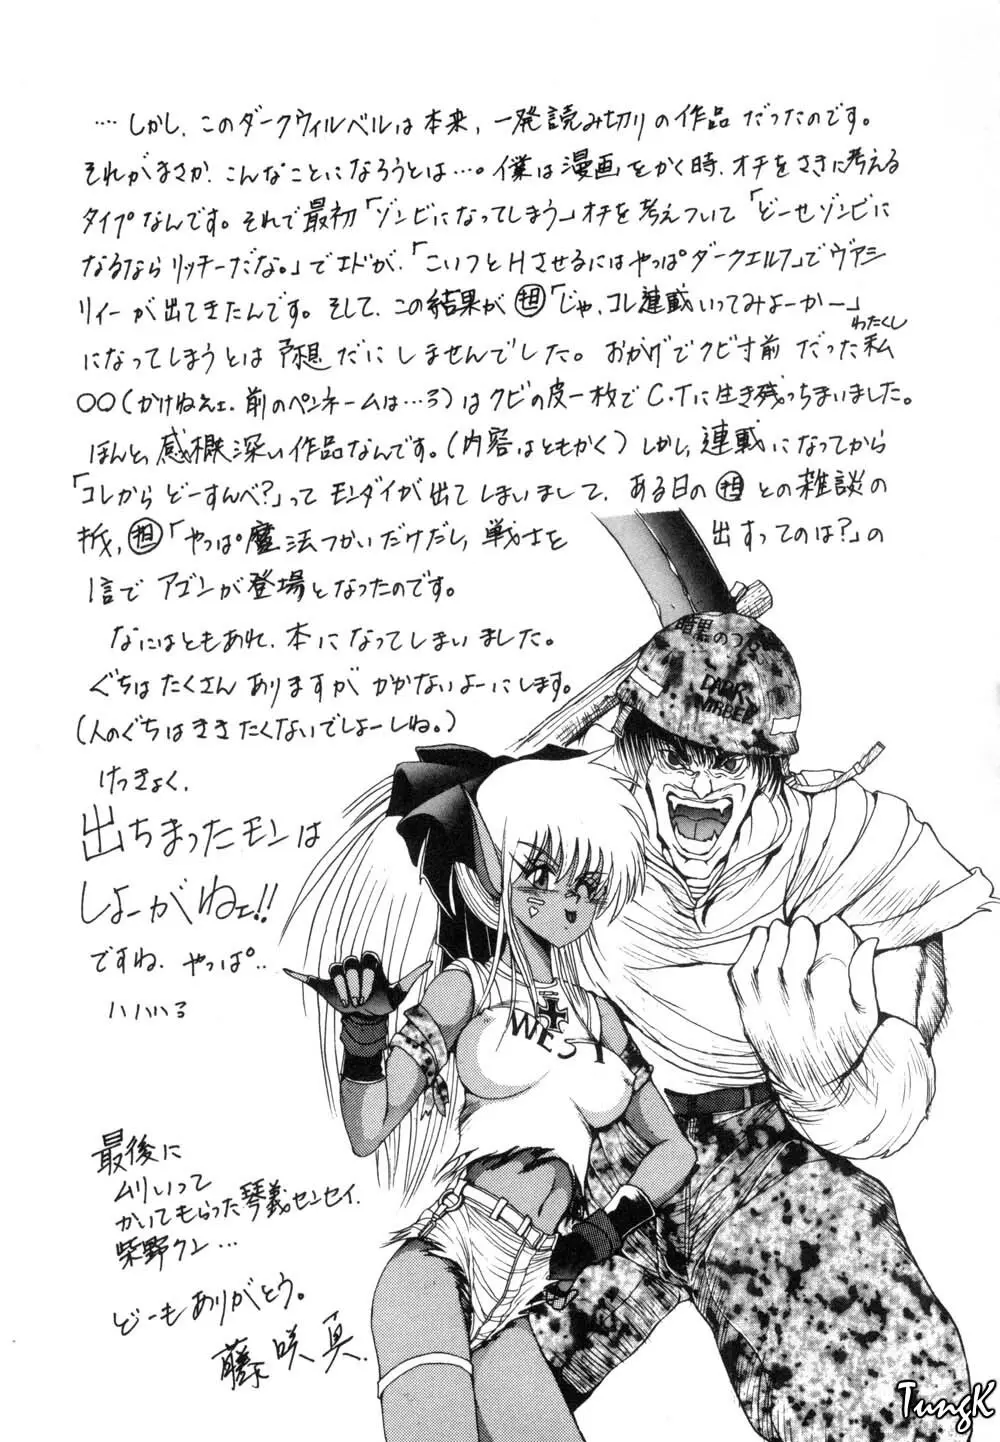 …しかし、このダークウィルベルは本来、一発読み切りの作品だったのです。
それがまさか、こんなことになろうとは…。僕は漫画をかく時、オチをさきに考える
タイプなんです。それで最初「ゾンビになってしまう」オチを考えついて「どーせゾンビに
なるならリッチーだな。」でエドが、「こいつとHさせるにはやっぱダークエルフ」でヴァシ
リィーが出てきたんです。そして、この結果が担「じゃ、コレ連載いってみよーか〜」
になってしまうとは予想だにしませんでした。おかげでクビ寸前だった私
わたくし
〇〇(かけねぇェ、前のペンネームは…ろ)はクビの皮一枚でC.Tに生き残っちまいました。
ほんと、感概深い作品なんです。(内容はともかく)しかし、連載になってから
「コレからどーすんべ?」ってモンダイが出てしまいまして、ある日の担との雑談の
折、担「やっぱ魔法つかいだけだし、戦士を出すってのは?」の
1言でアゴンが登場となったのです。
なにはともあれ、本になってしまいました。
ぐちはたくさんありますがかかないよーにします。
(人のぐちはききたくないでしょーしね。)
けっきょく、
出ちまったモンは
しょーがねェ!!
ですね、やっぱ‥
ハハハろ
暗黒の
DARK
WIRBEL
WEST
最後に
ムリいって
かいてもらった琴義センセイ、
柴野クン…
どーもありがとう。
藤咲真
TungK